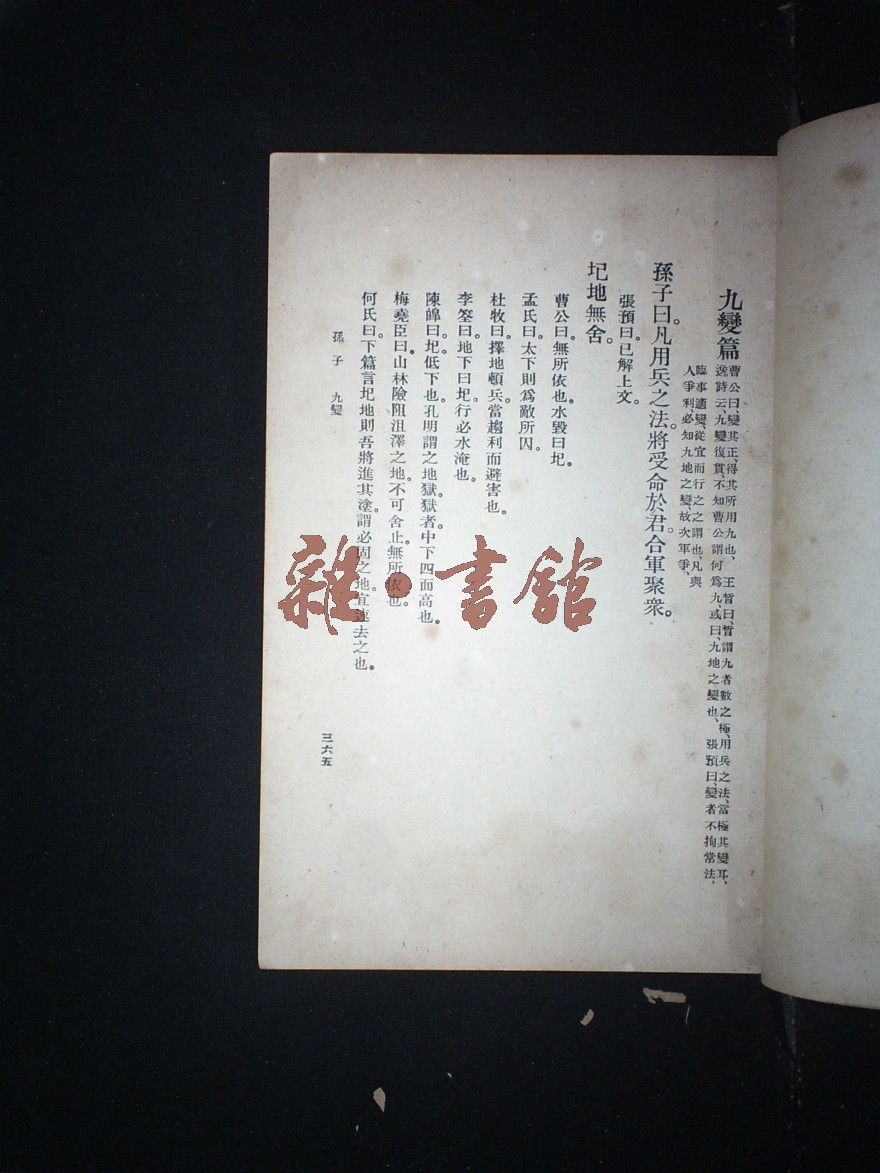 九變篇
曹公曰、變其正、得其所用九也、　王晳曰、晳謂九者數之極、用兵之法、當極其變耳、
逸詩云、九變復貫、不知曹公謂何爲九、或曰、九地之變也、張預曰、變者不拘常法、
臨事適變、從宜而行之之謂也、凡與
人爭利、必知九地之變、故次軍爭、
孫子曰。凡用兵之法。將受命於君。合軍聚衆。
張預曰。已解上文。
圮地無舍。
曹公曰。無所依也。水毀曰圮。
孟氏曰。太下則爲敵所囚。
杜牧曰。擇地頓兵。當趨利而避害也。
李筌曰。地下曰圮。行必水淹也。
陳皥曰。圮。低下也。孔明謂之地獄。獄者中下四面高也。
梅堯臣曰。山林險阻沮澤之地。不可舍止。無所依也。
何氏曰。下篇言圮地則吾將進其塗。謂必固之地。宜速去之也。
孫子　九變
三六五
雜·書館